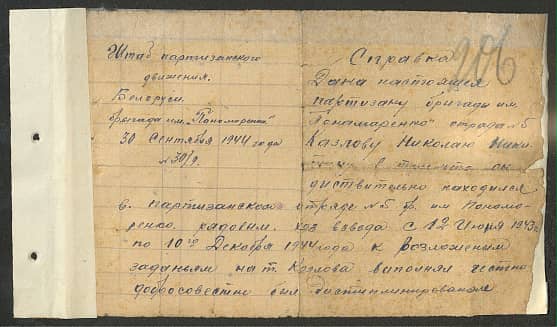 Штаб партизанского
движения.
Белоруси.
бригада им. "Пономаренко"
30 Сентября 1944 года
206
Справка
Дана настоящея
партизану бригади им.
"Пономаренко" отряда №5
Казлову Николаю
в том что он
диствительно находился
в. партизанском отряде №5 бр. им Пономо-
ренко. радовим. взвода с 12 Июня 1943г
по 10го Декабря 1944 года к возложеним
заданьям на т. Козлова виполнял честно
добросовестно бил дистиплинированам